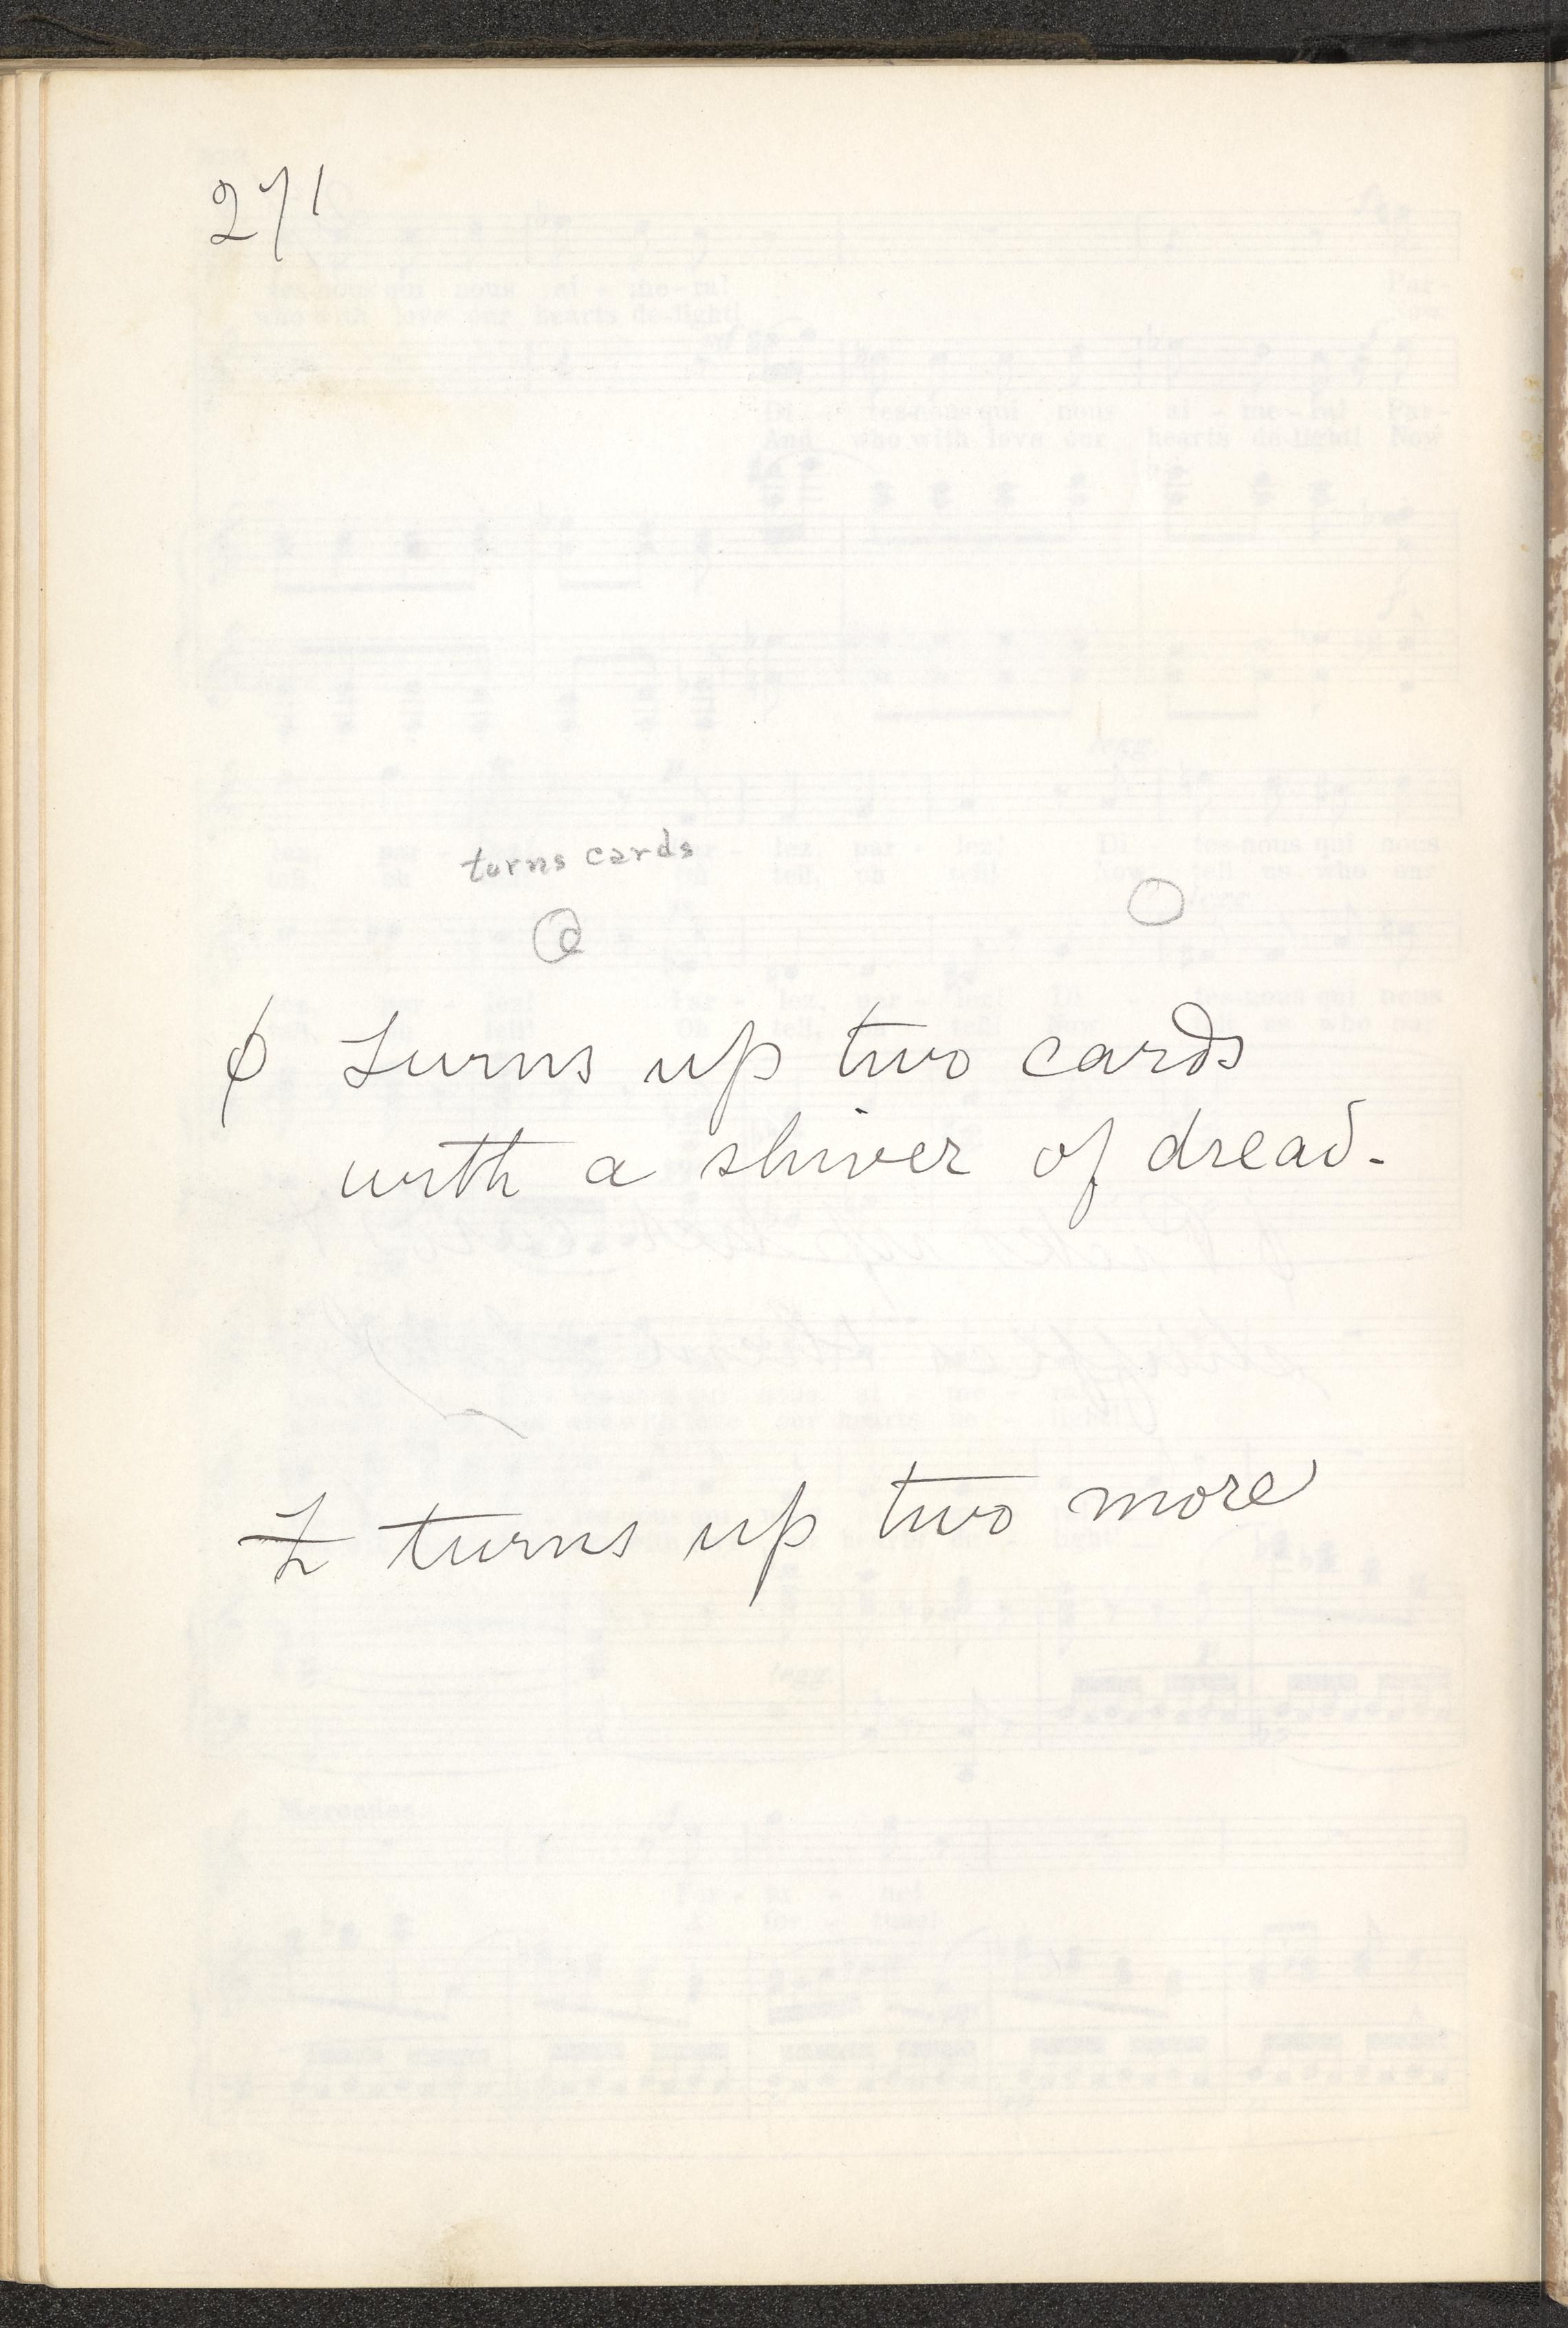 271
turns cards
C
φ Turns up two cards
with a shiver of dread.
turns up two more